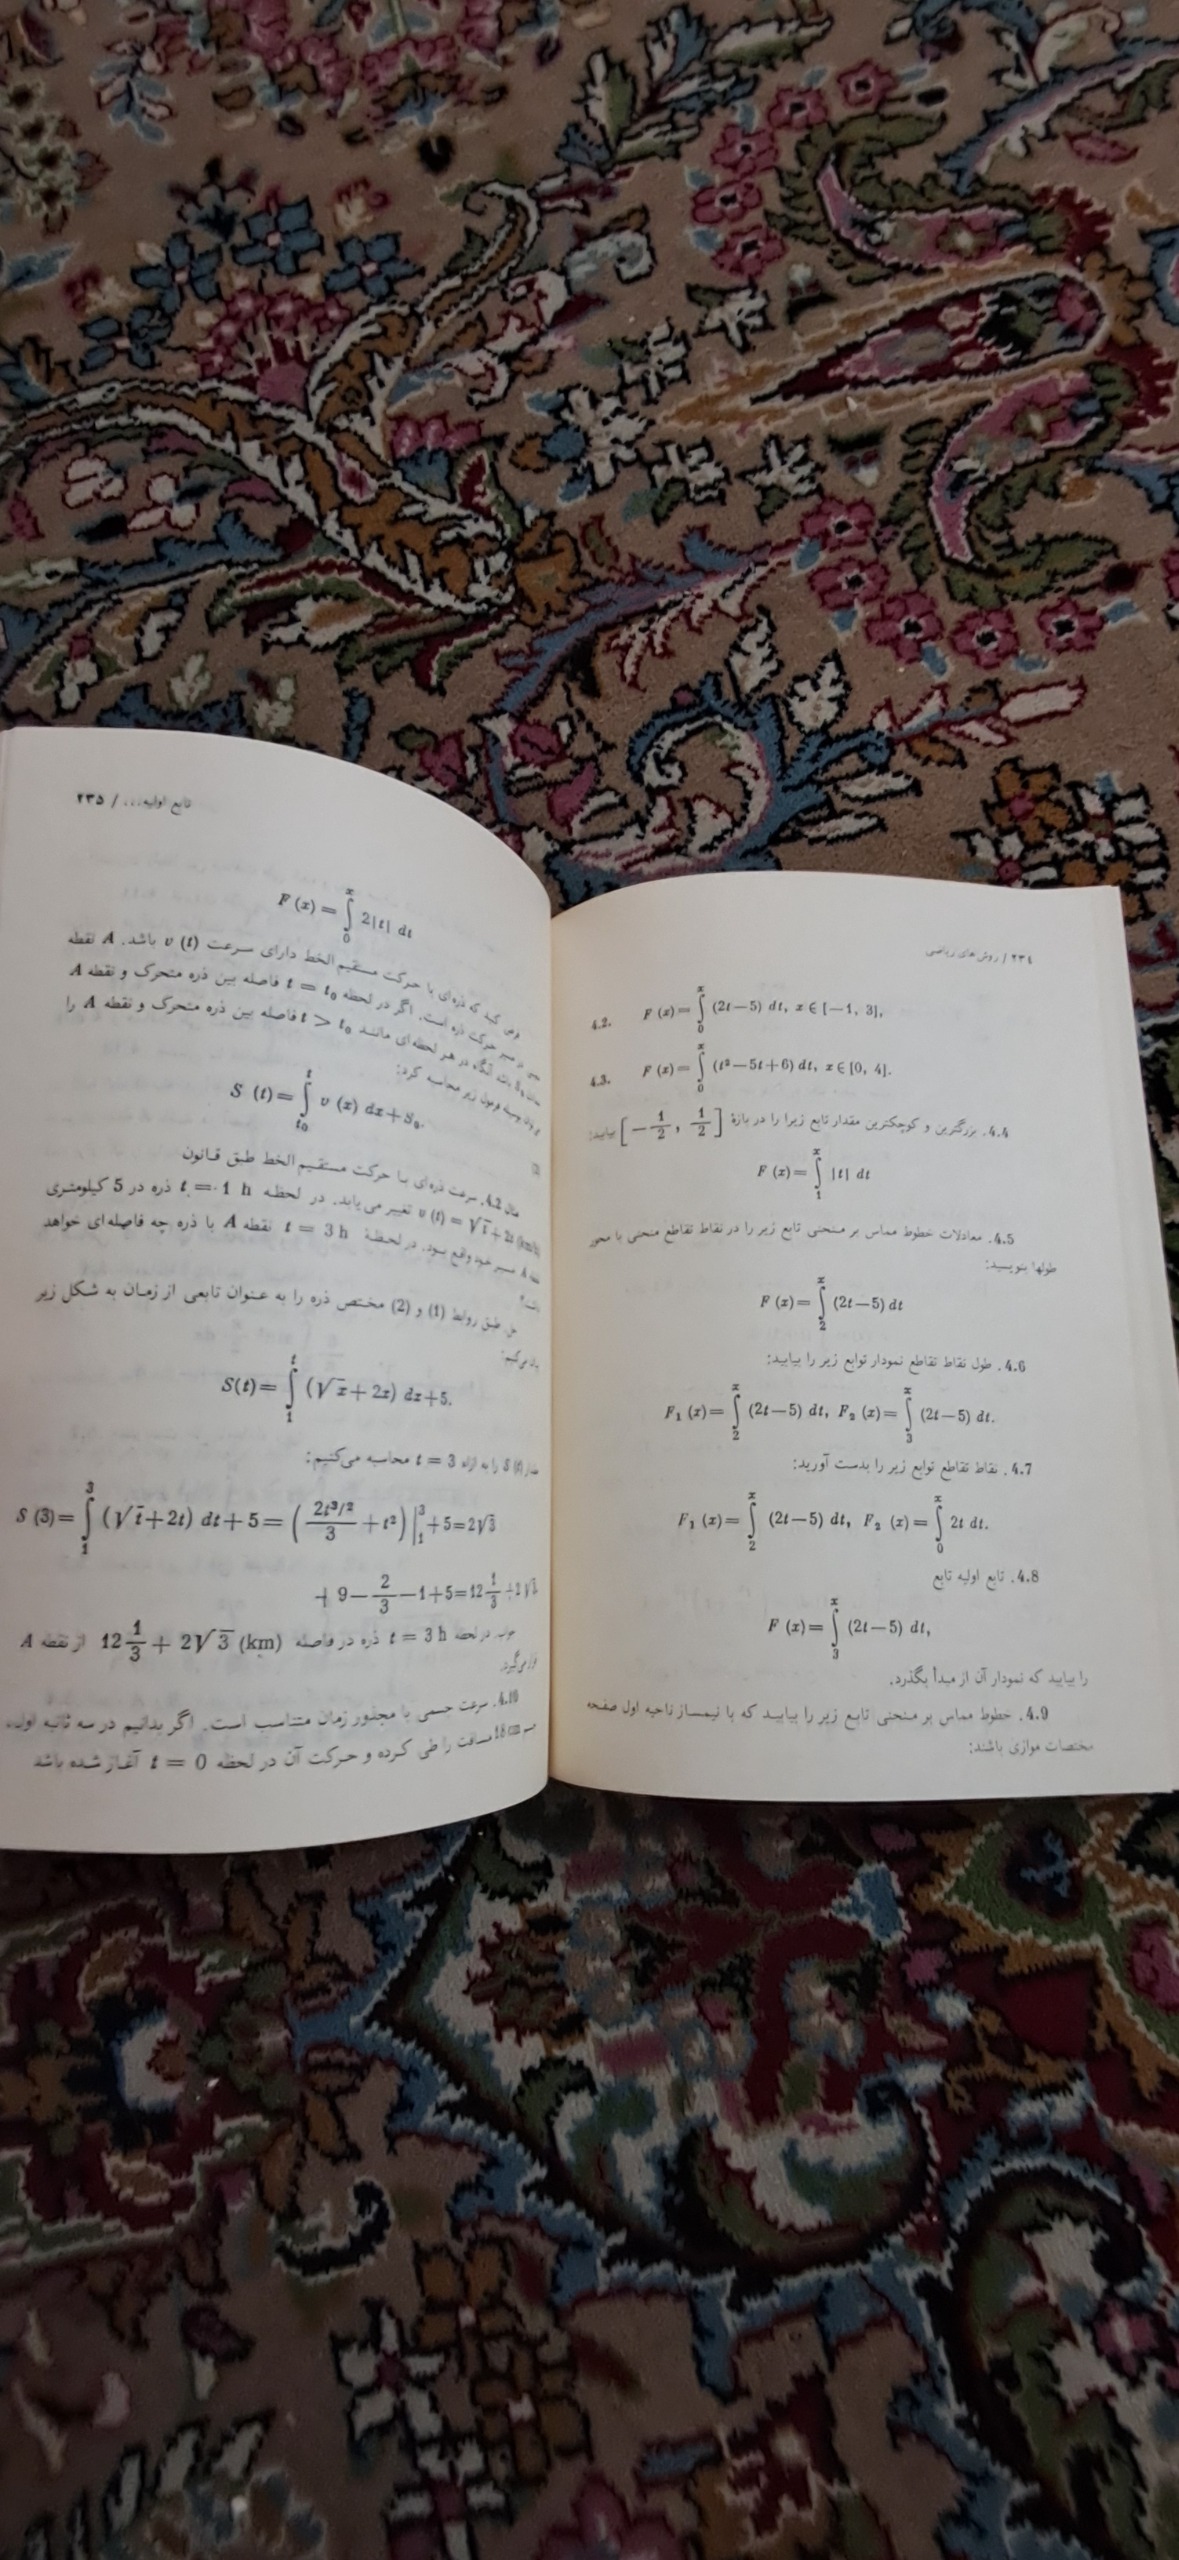 ۲۳٤ / روش های ریاضی
4.2. F (x) = ∫₀ˣ (2t−5) dt, x ∈ [−1, 3],
4.3. F (x) = ∫₀ˣ (t²−5t+6) dt, x ∈ [0, 4].
4.4. بزرگترین و کوچکترین مقدار تابع زیرا را در بازهٔ [−1/2, 1/2] بیابید:
F (x) = ∫₁ˣ |t| dt
4.5. معادلات خطوط مماس بر منحنی تابع زیر را در نقاط تقاطع منحنی با محور
طولها بنویسید:
F (x) = ∫₂ˣ (2t−5) dt
4.6. طول نقاط تقاطع نمودار توابع زیر را بیابید:
F₁ (x) = ∫₂ˣ (2t−5) dt, F₂ (x) = ∫₃ˣ (2t−5) dt.
4.7. نقاط تقاطع توابع زیر را بدست آورید:
F₁ (x) = ∫₂ˣ (2t−5) dt, F₂ (x) = ∫₀ˣ 2t dt.
4.8. تابع اولیه تابع
F (x) = ∫₃ˣ (2t−5) dt,
را بیابید که نمودار آن از مبدأ بگذرد.
4.9. خطوط مماس بر منحنی تابع زیر را بیابید که با نیمساز ناحیه اول صفحه
مختصات موازی باشند:
تابع اولیه... / ۲۳۵
F (x) = ∫₀ˣ 2|t| dt
فرض کنید که ذره‌ای با حرکت مستقیم الخط دارای سرعت v (t) باشد. A نقطه
مسیر حرکت ذره است. اگر در لحظه t = t₀ فاصله بین ذره متحرک و نقطه A
باشد، آنگاه در هر لحظه‌ای مانند t > t₀ فاصله بین ذره متحرک و نقطه A را
بوسیله فرمول زیر محاسبه کرد:
S (t) = ∫ₜ₀ᵗ v (x) dx + S₀.
(2)
مثال 4.2. سرعت ذره‌ای با حرکت مستقیم الخط طبق قانون
v (t) = √t + 2t (km/h) تغییر می‌یابد. در لحظه t = 1 h ذره در 5 کیلومتری
نقطه A مسیر خود واقع بود. در لحظهٔ t = 3 h نقطه A با ذره چه فاصله‌ای خواهد
داشت؟
حل. طبق روابط (1) و (2) مختص ذره را به عنوان تابعی از زمان به شکل زیر
بیان می‌کنیم:
S(t) = ∫₁ᵗ (√x + 2x) dx + 5.
مقدار S (t) را به ازاء t = 3 محاسبه می‌کنیم:
S (3) = ∫₁³ (√t + 2t) dt + 5 = (2t^{3/2}/3 + t²)|₁³ + 5 = 2√3
+ 9 − 2/3 − 1 + 5 = 12 1/3 + 2√3.
جواب. در لحظه t = 3 h ذره در فاصله 12 1/3 + 2√3 (km) از نقطه A
قرار می‌گیرد.
4.10. سرعت جسمی با مجذور زمان متناسب است. اگر بدانیم در سه ثانیه اولیه
جسم 18 cm مسافت را طی کرده و حرکت آن در لحظه t = 0 آغاز شده باشد